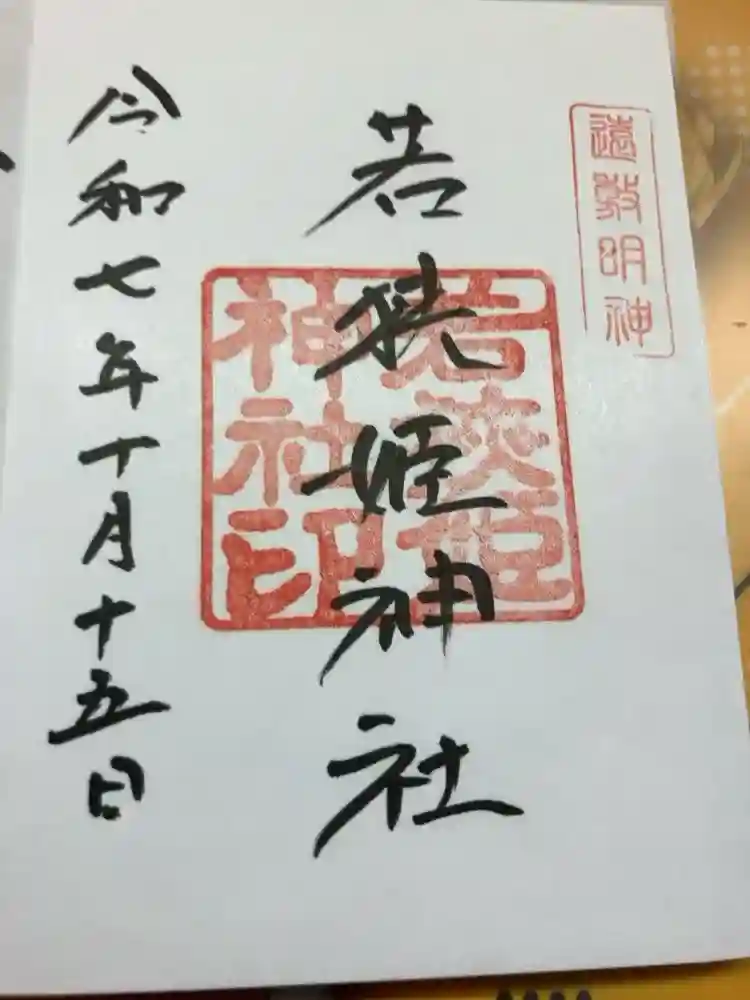 遠敷明神
若狭姫神社
若狭姫
神社印
令和七年十月十五日